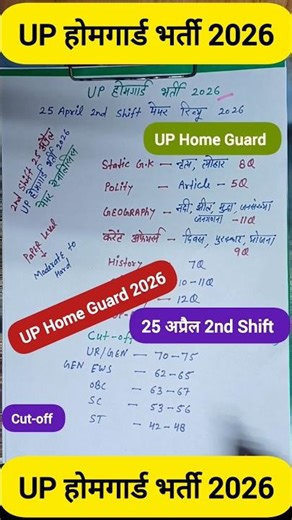 UP होमगार्ड भर्ती 2026
UP होमगार्ड भर्ती 2026
25 April 2nd Shift पेपर रिव्यू 2026
2nd Shift 25 अप्रैल
UP होमगार्ड भर्ती 2026
UP Home Guard
Static G.K — नृत्य, त्योहार 8Q
Polity — Article — 5Q
GEOGRAPHY — नदी, झील, मृदा, जनसंख्या
जनगणना — 11Q
PaPeR Level
Moderate to Hard
करेंट अफेयर्स — दिवस, पुरस्कार, योजना
9Q
History
7Q
10 — 11Q
12Q
UP Home Guard 2026
25 अप्रैल 2nd Shift
Cut-off
UR/GEN — 70 — 75
GEN EWS — 62 — 65
OBC — 63 — 67
SC — 53 — 56
ST — 42 — 48
Cut-off
UP होमगार्ड भर्ती 2026